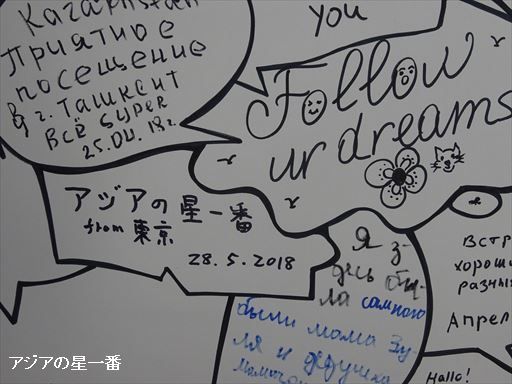 Kazakhstan
Приятное
посещение
в г. Ташкент
Всё super
25.04.18г.
you
Follow
ur dreams
アジアの星一番
from 東京
28.5.2018
Я з
десь бы
ла
были мама Зу-
ля и дедушка
Встр
хорош
разны
Апрел
Hallo!
アジアの星一番